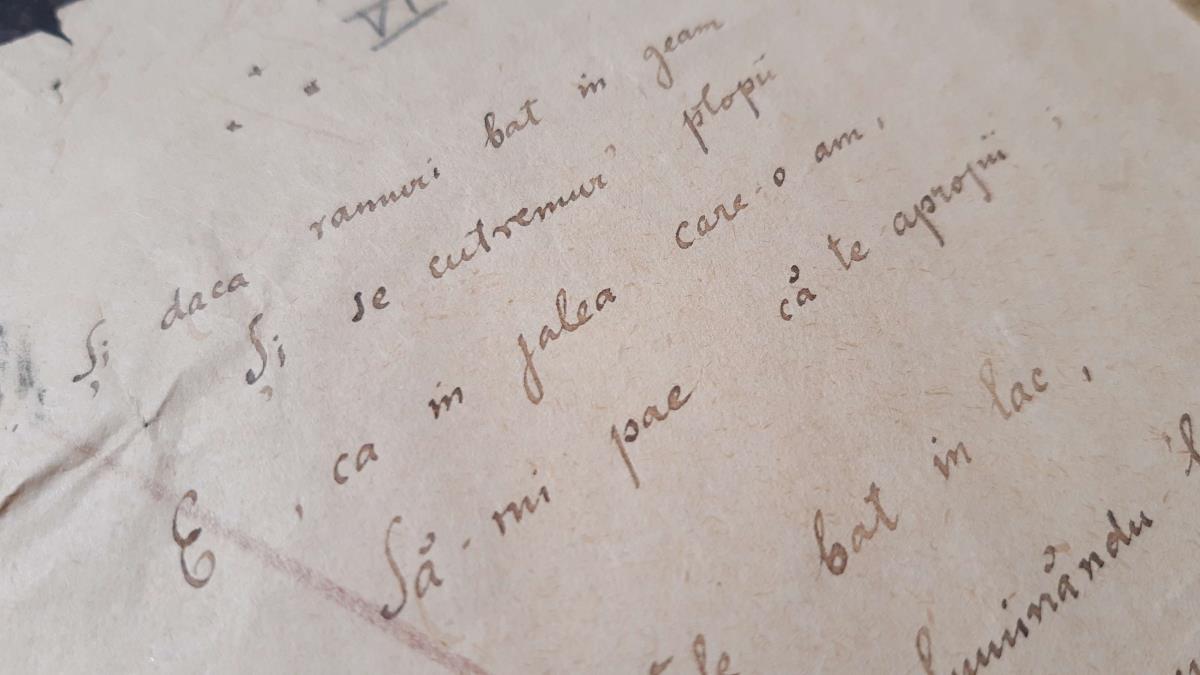 VI
Și daca ramuri bat in geam
Și se cutremur' plopii,
E, ca in jalea care-o am,
Să-mi pae că te apropii,
bat in lac,
luminăndu